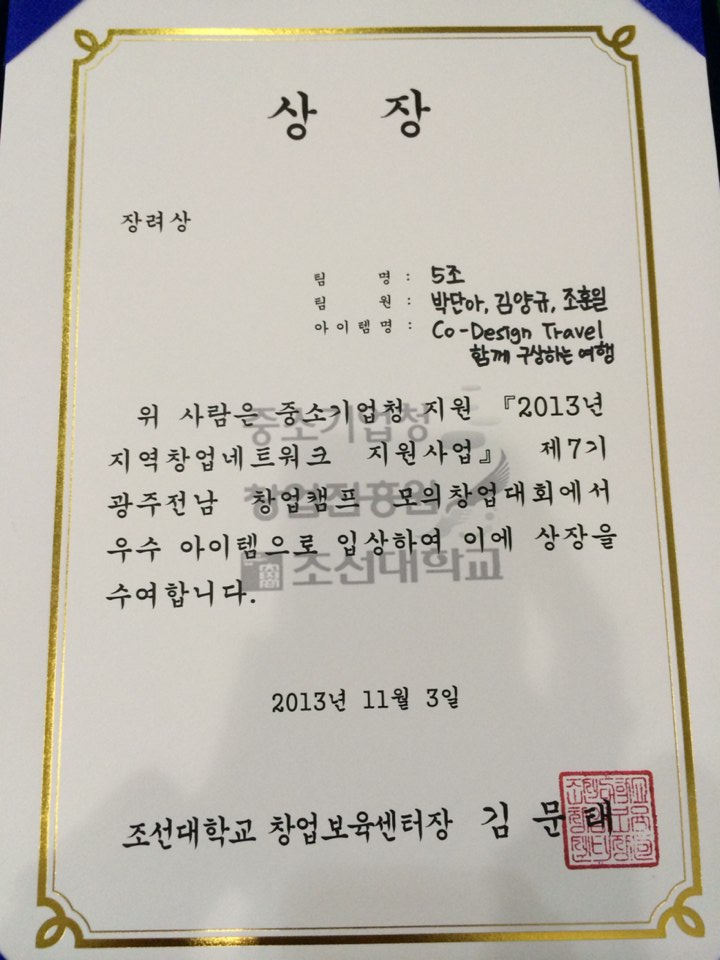 상 장
장려상
팀 명 : 5조
팀 원 : 박단아, 김양규, 조훈일
아이템명 : Co-Design Travel
함께 구상하는 여행
위 사람은 중소기업청 지원 『2013년
지역창업네트워크 지원사업』 제7기
광주전남 창업캠프 모의창업대회에서
우수 아이템으로 입상하여 이에 상장을
수여합니다.
중소기업청
창업진흥원
조선대학교
2013년 11월 3일
조선대학교 창업보육센터장 김 문 태